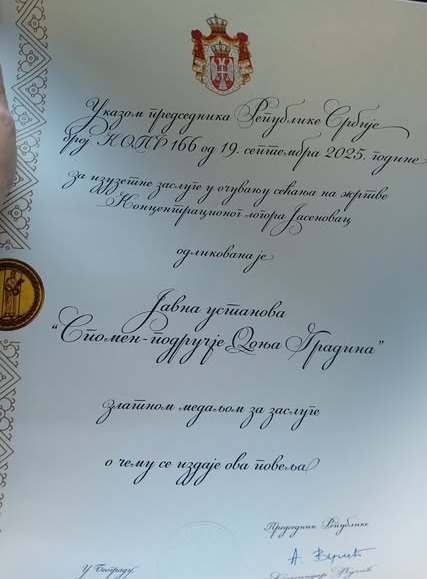 Указом председника Републике Србије
број КОПР 166 од 19. септембра 2025. године
за изузетне заслуге у очувању сећања на жртве
Концентрационог логора Јасеновац
одликована је
Јавна установа
“Спомен-подручје Доња Градина”
златном медаљом за заслуге
о чему се издаје ова повеља
Председник Републике
А. Вучић
У Београду,
Александар Вучић